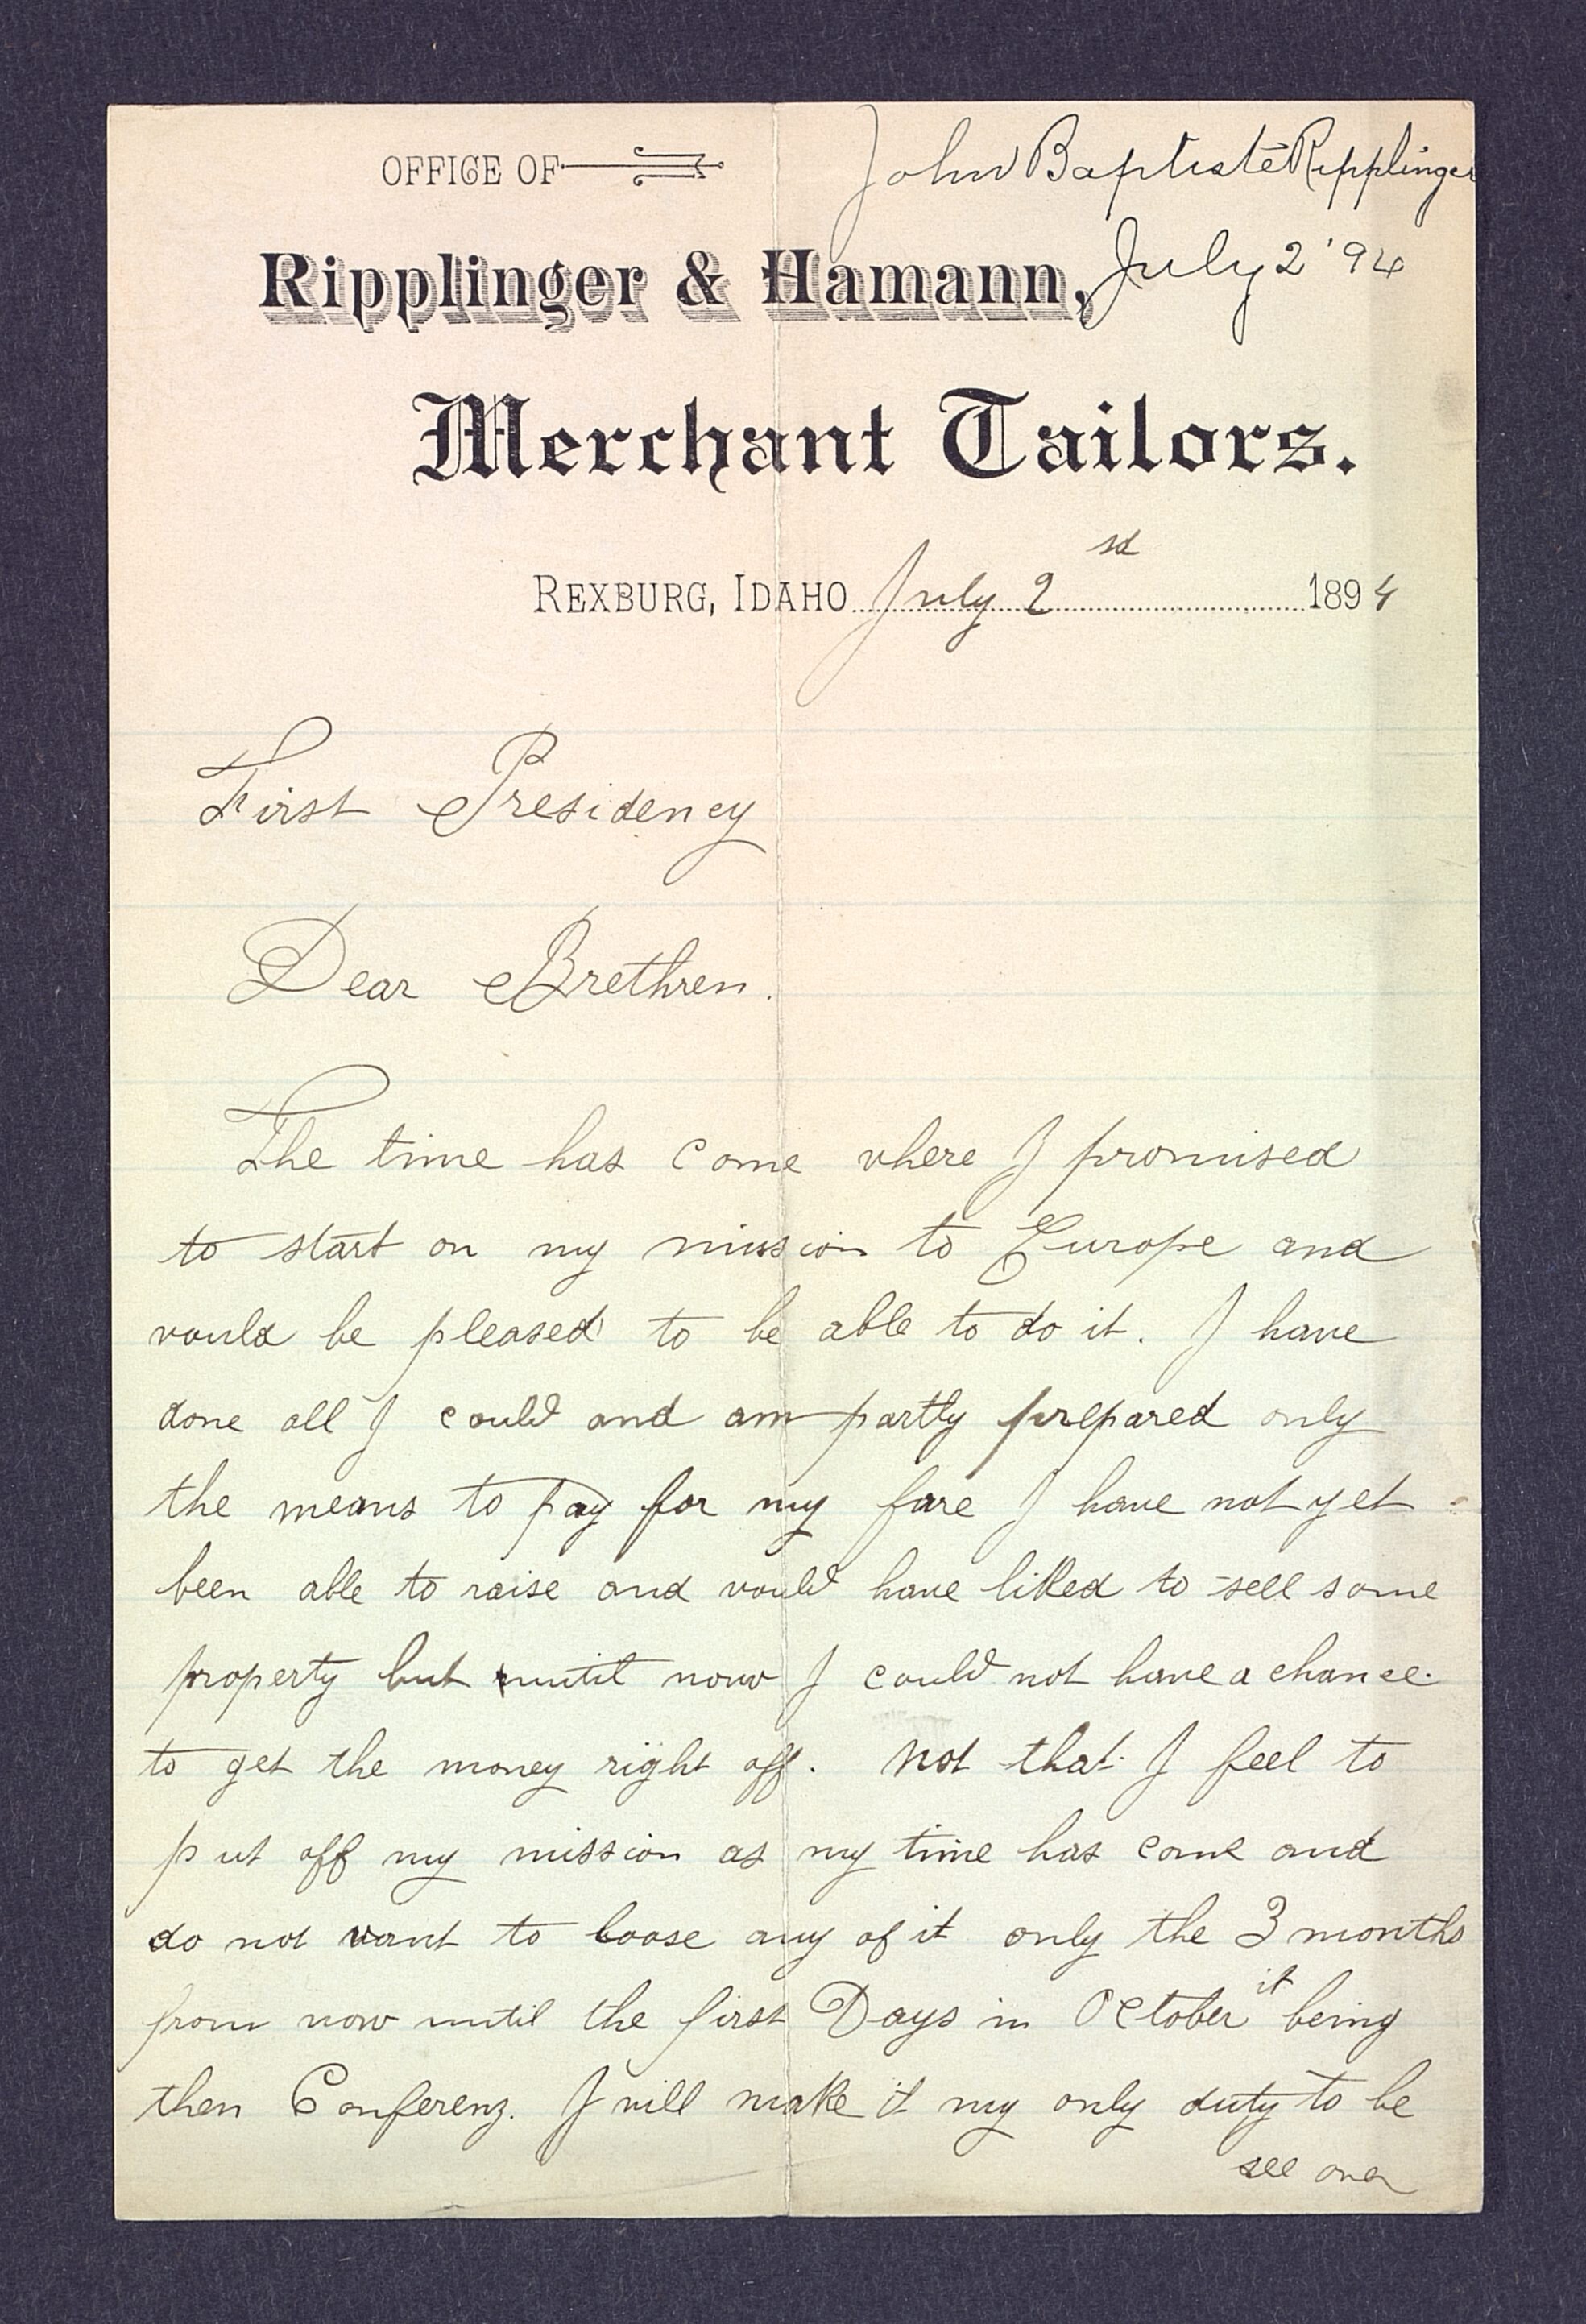 OFFICE OF
John Baptiste Ripplinger
Ripplinger & Hamann,
July 2 '94
Merchant Tailors.
REXBURG, IDAHO July 2sd 1894
First Presidency
Dear Brethren.
The time has come where I promised
to start on my mission to Europe and
vould be pleased to be able to do it. I have
done all I could and am partly prepared only
the means to pay for my fare I have not yet
been able to raise and vould have liked to sell some
property but until now I could not have a chance
to get the money right off. not that I feel to
put off my mission as my time has come and
do not vant to loose any of it only the 3 months
from now until the first Days in October it being
then Conferenz. I vill make it my only duty to be
see over